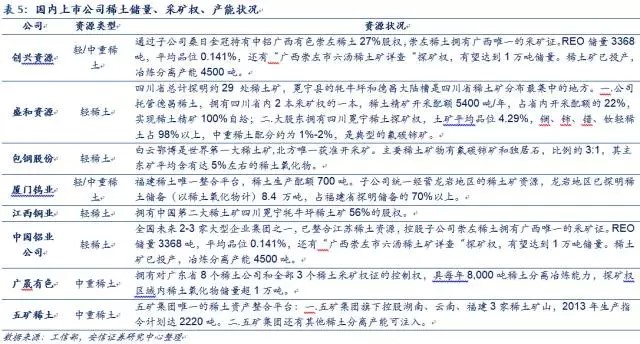 表 5：国内上市公司稀土储量、采矿权、产能状况
公司 资源类型 资源状况
创兴资源 轻/中重稀土
通过子公司桑日金冠持有中铝广西有色崇左稀土 27%股权；崇左稀土拥有广西唯一的采矿证。REO 储量 3368
吨，平均品位 0.141%，还有“广西崇左市六汤稀土矿详查”探矿权，有望达到 1 万吨储量。稀土矿已投产，
冶炼分离产能 4500 吨。
盛和资源 轻稀土
四川省总计探明约 29 处稀土矿，冕宁县的牦牛坪和德昌大陆槽是四川省稀土矿分布最集中的地方。一.公司
托管德昌稀土，拥有四川省内 2 本采矿权的一本，稀土精矿开采配额 5400 吨/年，占省内开采配额的 22%，
实现稀土精矿 100%自给；二.大股东拥有四川冕宁稀土探矿权，土矿平均品位 4.29%，镧、铈、镨、钕轻稀
土占 98%以上，中重稀土配分约为 1%-2%，是典型的氟碳铈矿。
包钢股份 轻稀土
白云鄂博是世界第一大稀土矿，北方唯一获准开采矿。主要稀土矿物有氟碳铈矿和独居石，比例约 3:1，其主
东矿平均含有达 5%左右的稀土氧化物。
厦门钨业 轻/中重稀土
福建稀土唯一整合平台，稀土生产配额 700 吨。子公司统一经营龙岩地区的稀土矿资源，龙岩地区已探明稀
土储备（以稀土氧化物计）8.4 万吨，占福建省探明储备的 70%以上。
江西铜业 轻稀土
拥有中国第二大稀土矿四川冕宁牦牛坪稀土矿 56%的股权。
中国铝业公司 轻稀土
全国未来 2-3 家大型企业集团之一，已整合江苏稀土资源，控股子公司崇左稀土拥有广西唯一的采矿证。REO
储量 3368 吨，平均品位 0.141%，还有“广西崇左市六汤稀土矿详查”探矿权，有望达到 1 万吨储量。稀土
矿已投产，冶炼分离产能 4500 吨。
广晟有色 中重稀土
拥有对广东省 8 个稀土公司和全部 3 个稀土采矿权证的控制权，具每年 8,000 吨稀土分离冶炼能力，探矿权
区域内稀土氧化物储量超 1 万吨。
五矿稀土 中重稀土
五矿集团唯一的稀土资产整合平台：一.五矿集团旗下控股湖南、云南、福建 3 家稀土矿山，2013 年生产指
令计划达 2220 吨。二.五矿集团还有其他稀土分离产能可注入。
数据来源：工信部，安信证券研究中心整理